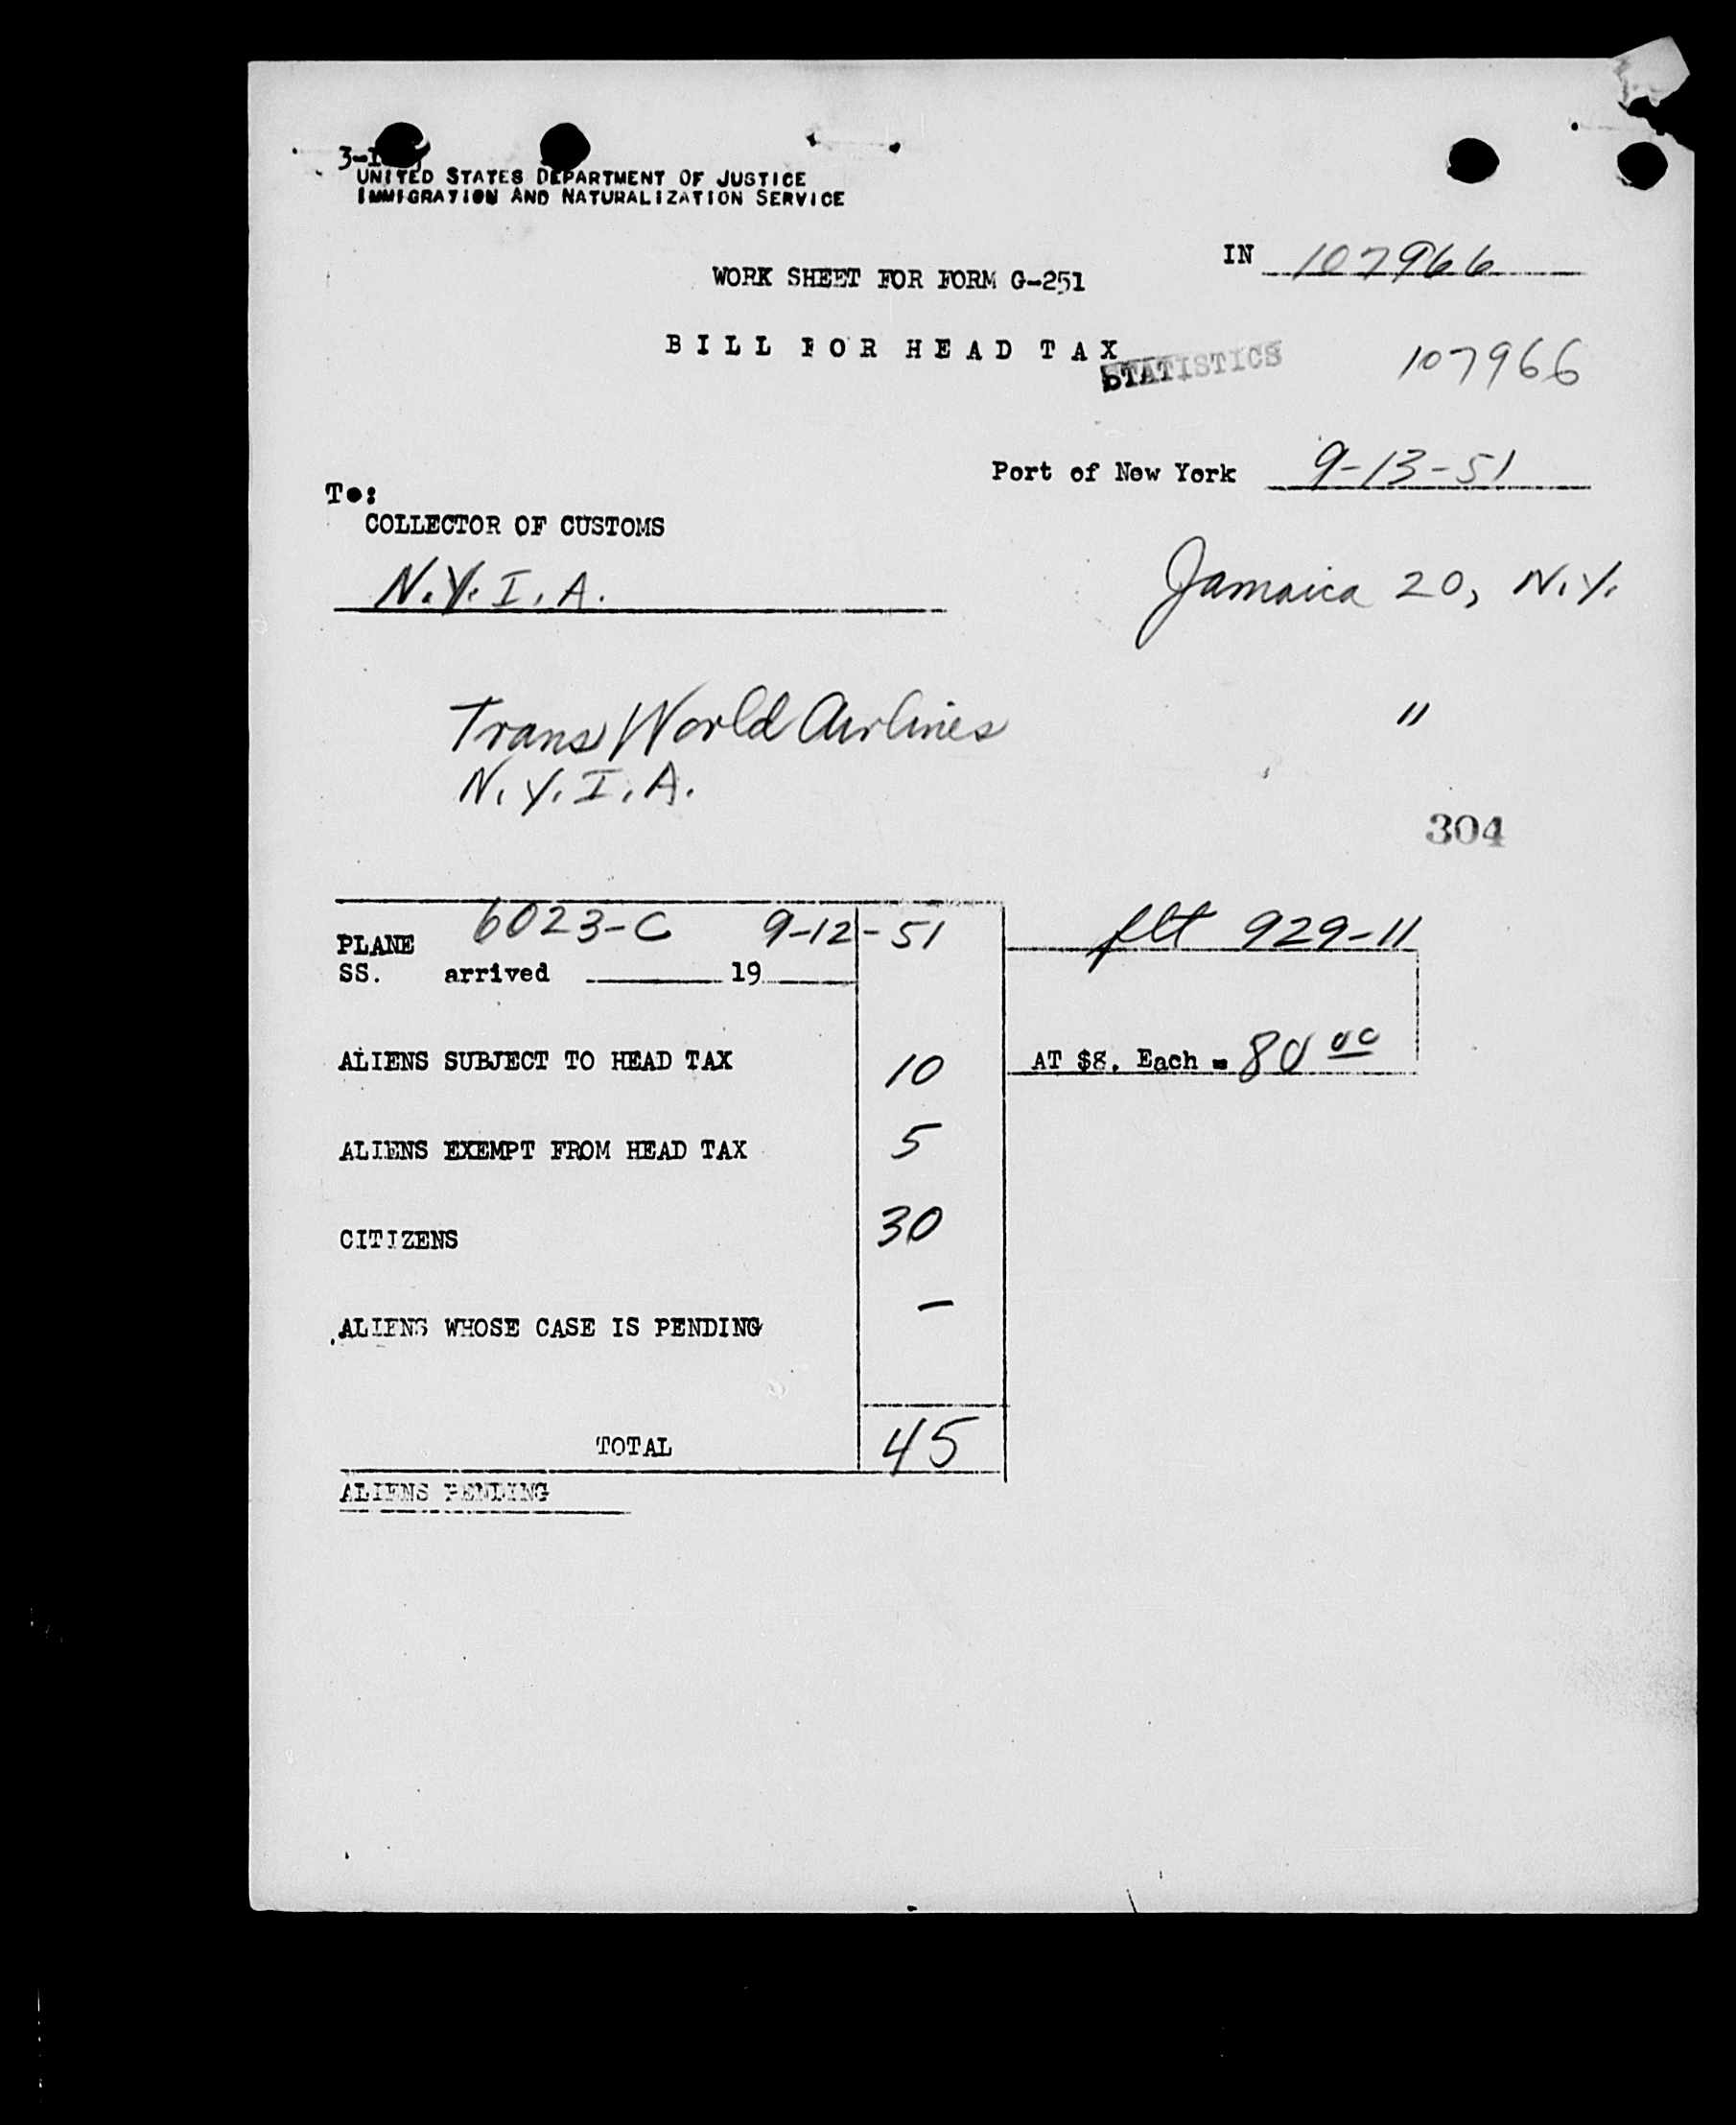 UNITED STATES DEPARTMENT OF JUSTICE
IMMIGRATION AND NATURALIZATION SERVICE
IN 107966
WORK SHEET FOR FORM G-251
BILL FOR HEAD TAX
STATISTICS
107966
Port of New York 9-13-51
To:
COLLECTOR OF CUSTOMS
N.Y.I.A.
Jamaica 20, N.Y.
Trans World Airlines
"
N.Y.I.A.
304
6023-C 9-12-51
flt 929-11
PLANE
SS. arrived 19
ALIENS SUBJECT TO HEAD TAX 10
AT $8. Each = 80 00
ALIENS EXEMPT FROM HEAD TAX 5
CITIZENS 30
ALIENS WHOSE CASE IS PENDING –
TOTAL 45
ALIENS PENDING